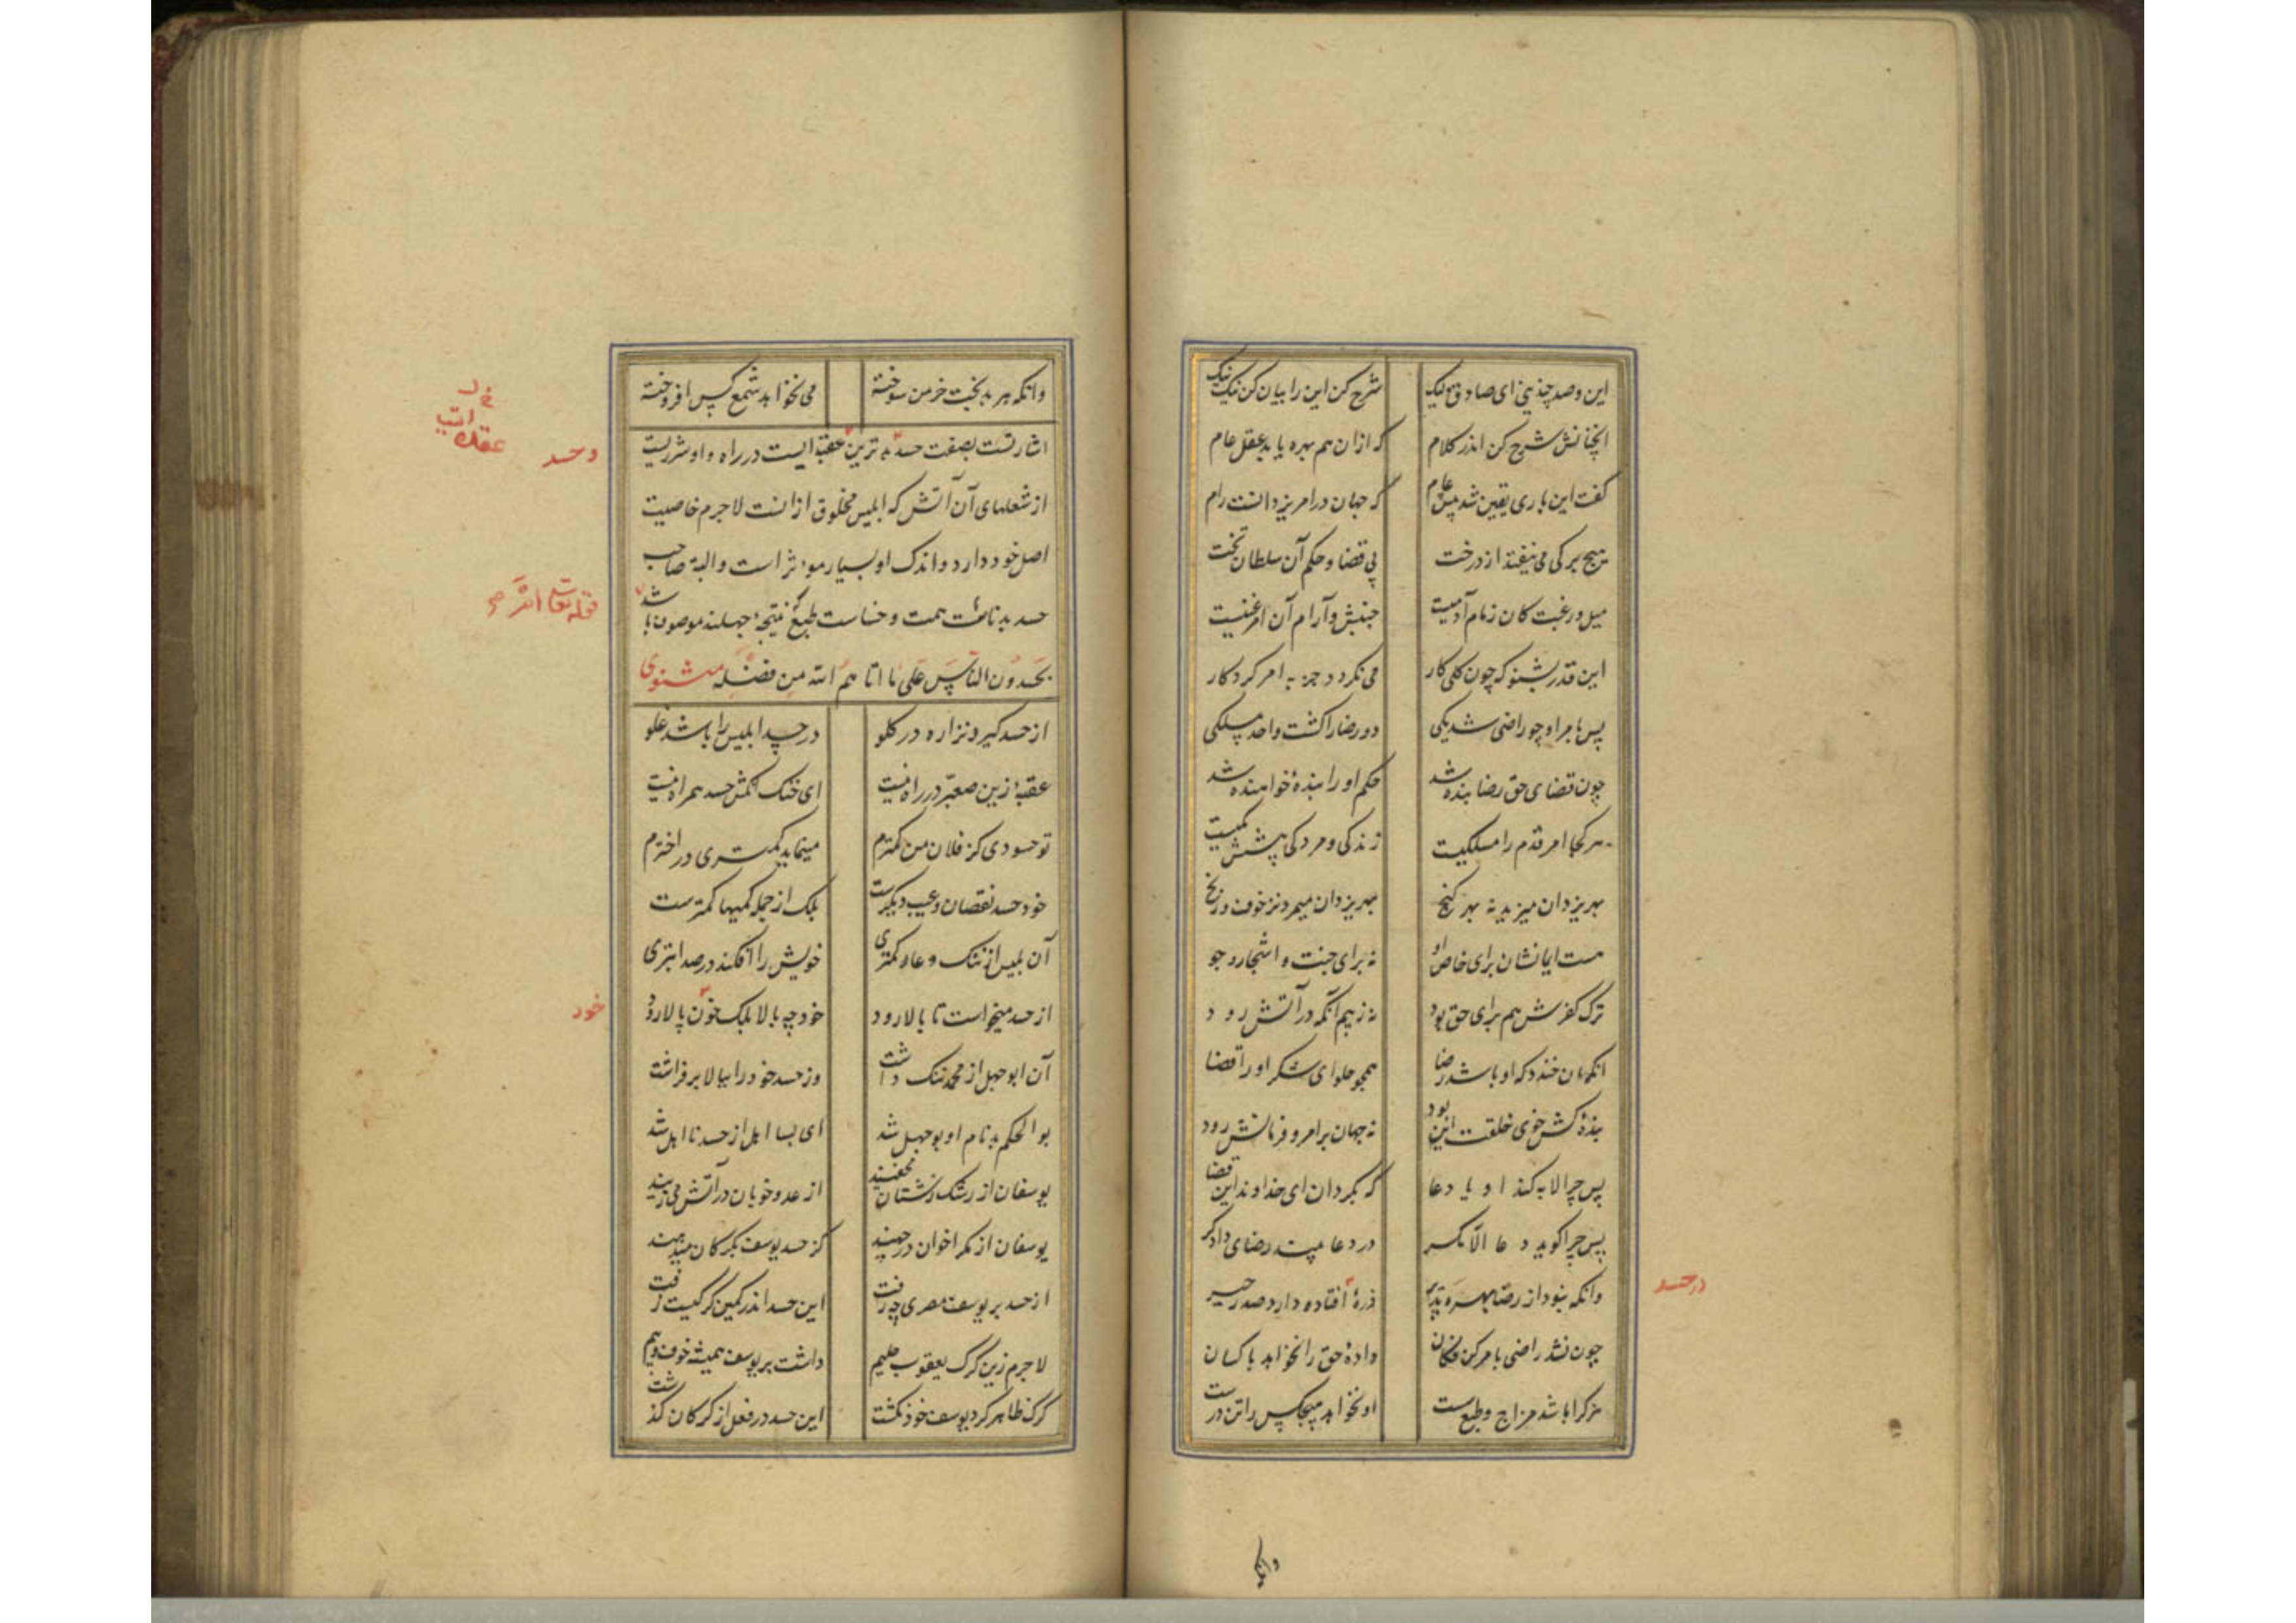 این و صد چندینی ای صادق ولیک شرح کن این را بیان کن نیک نیک
آنچنانش شرح کن اندر کلام که از ان هم بهره یابد عقل عام
گفت این باری یقین شد پیش عام که جهان در امر یزدانست رام
هیچ برکی می نیفتد از درخت بی قضا و حکم آن سلطان تخت
میل و رغبت کان زمام آدمیست جنبش و آرام آن امر غنیست
این قدر بشنو که چون کلی کار می نکردد جز به امر کردکار
چون قضای حق رضا بنده شد حکم او را بندهٔ خواهنده شد
هر کجا امر قدم را مسلکیست زندکی و مردکی پیشش یکیست
بهر یزدان میزید نه بهر کنج بهر یزدان میمرد نز خوف و رنج
هست ایمانشان برای خاص او نه برای جنت و اشجار و جو
ترک کفرش هم برای حق بود نه ز بیم آنکه در آتش رود
همچو حلوای شکر او را قضا
بندهٔ کش خوی خلقت این بود نه جهان بر امر و فرمانش رود
پس چرا لابه کند او یا دعا که بکردان ای خداوند این قضا
پس چرا کوید دعا الا مکر در دعا بیند رضای دادکر
وانکه نبود از رضا بهره ذرهٔ افتاده دارد صد
چون نشد راضی بامر کن فکان دادهٔ حق را نخواهد با کسان
هر کرا باشد مزاج و طبع سست او نخواهد هیچکس را تن درست
در حسد
وانکه
وانکه هر بدبخت خرمن سوخته می نخواهد شمع کس افروخته
اشارتست بصفت حسد بد ترین عقبهٔ ایست در راه و او شرریست
از شعلهای آن آتش که ابلیس مخلوق از انست لاجرم خاصیت
اصل خود دارد و اندک او بسیار موثر است و البته صاحب
حسد بدنائت همت و خساست طبع نتیجهٔ جهلند موصوف باشد
یحسدون الناس علی ما اتاهم الله من فضله مثنوی
از حسد کیرد ترا ره در کلو در حسد ابلیس را باشد غلو
عقبهٔ زین صعبتر در راه نیست ای خنک آنکش حسد همراه نیست
تو حسودی کز فلان من کمترم میفزاید کمتری در اخترم
خود حسد نقصان و عیب دیکرست بلک از جمله کمیها کمترست
آن بلیس از ننک و عار کمتری خویش را افکند در صد ابتری
از حسد میخواست تا بالا رود خود چه بالا بلک خون پالا رود
آن ابوجهل از محمد ننک داشت وز حسد خود را ببالا برفراشت
بوالحکم بد نام او بوجهل شد ای بسا اهل از حسد نااهل شد
یوسفان از رشک زشتان مخفیند از عدو خوبان در آتش می زیند
یوسفان از مکر اخوان در چهند کز حسد یوسف بکرکان میدهند
از حسد بر یوسف مصری چه رفت این حسد اندر کمین کرکیست زفت
لاجرم زین کرک یعقوب حلیم داشت بر یوسف همیشه خوف و بیم
کرک ظاهر کرد یوسف خود نکشت این حسد در فعل از کرکان کذشت
و حسد
خود